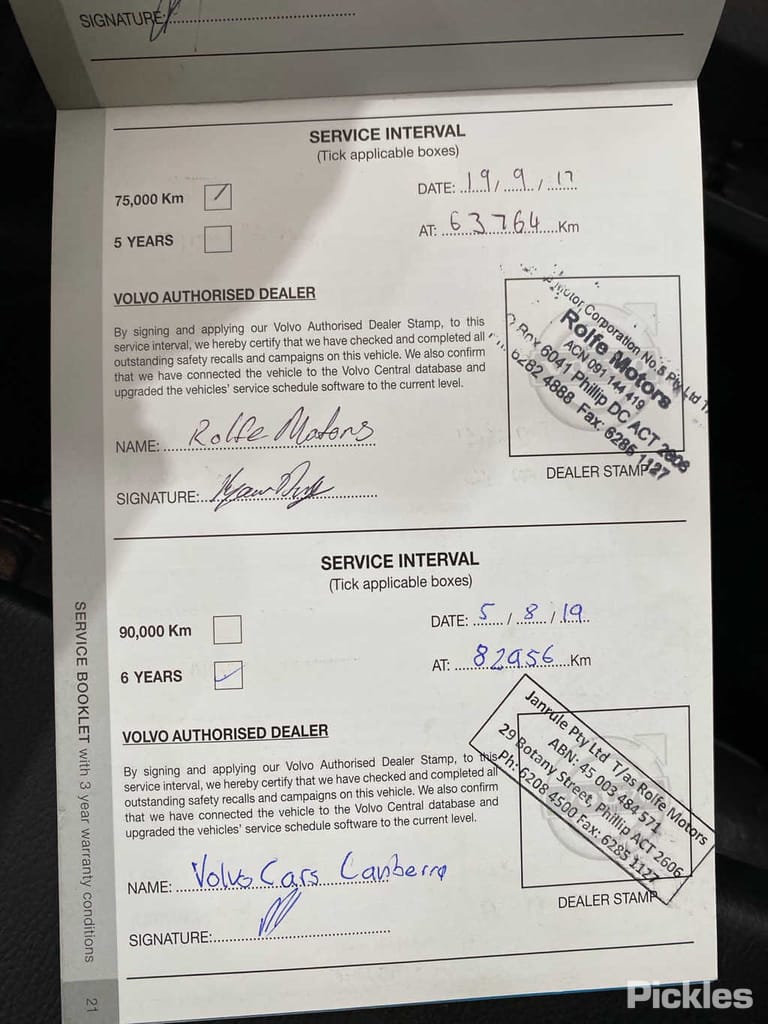 SIGNATURE:
SERVICE INTERVAL
(Tick applicable boxes)
75,000 Km
DATE: 19/9/17
5 YEARS
AT: 63764 Km
VOLVO AUTHORISED DEALER
By signing and applying our Volvo Authorised Dealer Stamp, to this
service interval, we hereby certify that we have checked and completed all
outstanding safety recalls and campaigns on this vehicle. We also confirm
that we have connected the vehicle to the Volvo Central database and
upgraded the vehicles' service schedule software to the current level.
NAME: Rolfe Motors
SIGNATURE:
Motor Corporation No.5 Pty Ltd
Rolfe Motors
ACN 091 144 419
Box 6041 Phillip DC ACT 2606
6282 4888 Fax: 6285 1127
DEALER STAMP
SERVICE INTERVAL
(Tick applicable boxes)
90,000 Km
DATE: 5/8/19
6 YEARS
AT: 82956 Km
VOLVO AUTHORISED DEALER
By signing and applying our Volvo Authorised Dealer Stamp, to this
service interval, we hereby certify that we have checked and completed all
outstanding safety recalls and campaigns on this vehicle. We also confirm
that we have connected the vehicle to the Volvo Central database and
upgraded the vehicles' service schedule software to the current level.
NAME: Volvo Cars Canberra
SIGNATURE:
Janrule Pty Ltd T/as Rolfe Motors
ABN: 45 003 484 571
29 Botany Street, Phillip ACT 2606
Ph: 6208 4500 Fax: 6285 1127
DEALER STAMP
SERVICE BOOKLET with 3 year warranty conditions
21
Pickles